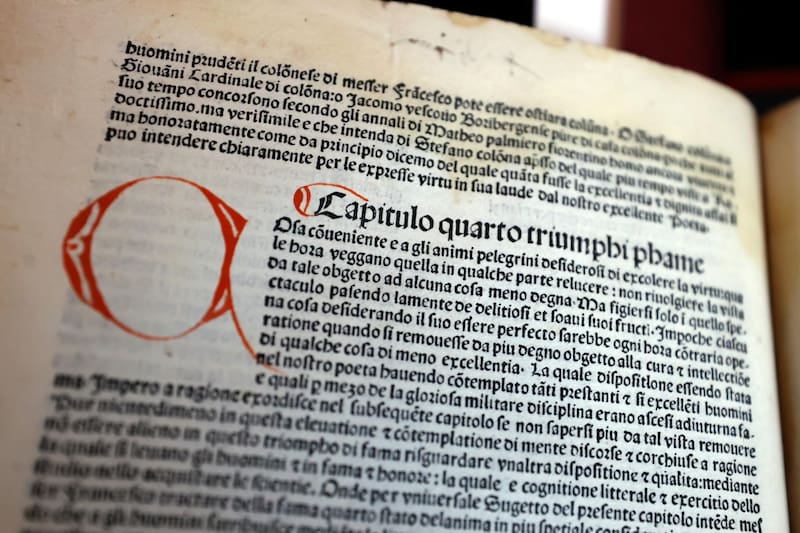 huomini prudēti il colōnese di messer Frācesco pote essere ostiara colūna. O Stefano colōna o
Giovāni Cardinale di colōna: o Jacomo vescovo Boribergense pure di casa colōna po che
suo tempo concorsono secondo gli annali di Matheo palmiero fiorentino homo ancora
doctissimo. ma verisimile e che intenda di Stefano colōna apsso del quale piu tempo visse
ma honoratamente come da principio dicemo del quale quāta fusse la excellentia ⁊ dignita assai si
puo intendere chiaramente per le expresse virtu in sua laude dal nostro excellente Poeta.
Capitulo quarto triumphi phame
Q Osa cōueniente e a gli animi pelegrini desiderosi di excolere la virtu: qua
le hora veggano quella in qualche parte relucere: non riuolgiere la vista
da tale obgetto ad alcuna cosa meno degna. Ma figiersi solo i quello spe-
ctaculo pasendo lamente de delitiosi et soaui suoi fructi. Impoche ciascu
na cosa desiderando il suo essere perfecto sarebbe ogni hora cōtraria ope-
ratione quando si remouesse da piu degno obgetto alla cura ⁊ intellectiōe
di qualche cosa di meno excellentia. La quale dispositione essendo stata
nel nostro poeta hauendo cōtemplato tāti prestanti ⁊ si excellēti huomini
e quali p mezo de la gloriosa militare disciplina erano ascesi adiuturna fa-
ma. Impero a ragione exordisce nel subsequēte capitolo se non sapersi piu da tal vista remouere
Pur nientedimeno in questa eleuatione ⁊ cōtemplatione di mente discorse ⁊ corchiuse a ragione
nō essere alieno in questo triompho di fama risguardare vnaltra dispositione ⁊ qualita: mediante
la quale si leuano gli huomini ⁊ in fama ⁊ honore: la quale e cognitione litterale ⁊ exercitio dello
studio nello acquistare le scientie. Onde per vniuersale Sugetto del presente capitolo intēde mes
ser Francesco tractare della fama quarto stato delanima in piu spetiale
do che a gli huomini